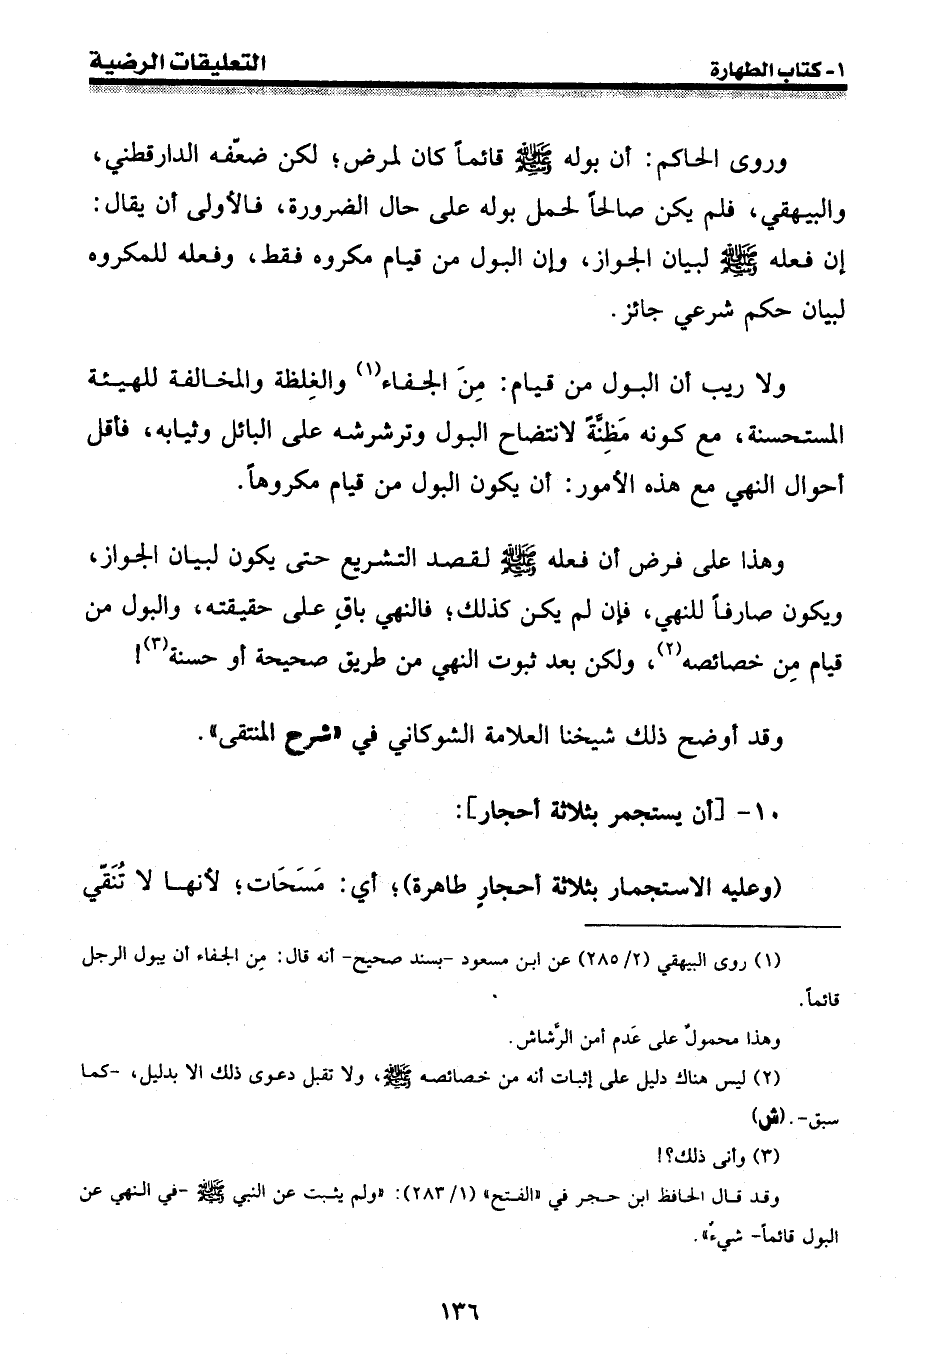 ١- كتاب الطهارة
التعليقات الرضية
وروى الحاكم: أن بوله ﷺ قائماً كان لمرض؛ لكن ضعّفه الدارقطني،
والبيهقي، فلم يكن صالحاً لحمل بوله على حال الضرورة، فالأولى أن يقال:
إن فعله ﷺ لبيان الجواز، وإن البول من قيام مكروه فقط، وفعله للمكروه
لبيان حكم شرعي جائز.
ولا ريب أن البول من قيام: مِنَ الجفاء(١) والغِلظة والمخالفة للهيئة
المستحسنة، مع كونه مَظِنَّةً لانتضاح البول وترشرشه على البائل وثيابه، فأقل
أحوال النهي مع هذه الأمور: أن يكون البول من قيام مكروهاً.
وهذا على فرض أن فعله ﷺ لقصد التشريع حتى يكون لبيان الجواز،
ويكون صارفاً للنهي، فإن لم يكن كذلك؛ فالنهي باقٍ على حقيقته، والبول من
قيام مِن خصائصه(٢)، ولكن بعد ثبوت النهي من طريق صحيحة أو حسنة(٣)!
وقد أوضح ذلك شيخنا العلامة الشوكاني في «شرح المنتقى».
١٠- [أن يستجمر بثلاثة أحجار]:
(وعليه الاستجمار بثلاثة أحجارٍ طاهرة)؛ أي: مَسَحَات؛ لأنها لا تُنَقّي
(١) روى البيهقي (٢/ ٢٨٥) عن ابن مسعود -بسند صحيح- أنه قال: مِن الجفاء أن يبول الرجل
قائماً.
وهذا محمولٌ على عَدم أمن الرَّشاش.
(٢) ليس هناك دليل على إثبات أنه من خصائصه ﷺ، ولا تقبل دعوى ذلك الا بدليل، -كما
سبق-. (ش)
(٣) وأنى ذلك؟!
وقد قال الحافظ ابن حجر في «الفتح» (١/ ٢٨٣): «ولم يثبت عن النبي ﷺ -في النهي عن
البول قائماً- شيءٌ».
١٣٦